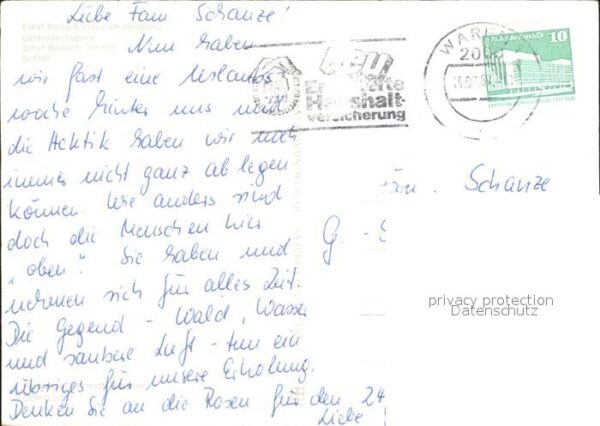 Liebe Fam. Schanze!
Ernst-Barlach-Haus am Heidberg
Gertrudenkapelle
Ernst-Barlach-Theater
Schloß
Nun haben
wir fast eine Urlaubs-
woche hinter uns und
die Hektik haben wir noch
immer nicht ganz ablegen
können. Wie anders sind
doch die Menschen hier
"oben". Sie haben und
nehmen sich für alles Zeit.
Die Gegend - Wald, Wasser
und saubere Luft - tun ein
übriges für unsere Erholung.
Denken Sie an die Rosen für den 24
Liebe
neu
Haushalt-
versicherung
WAREN
20
10
Fam. Schanze
G. -
privacy protection
Datenschutz